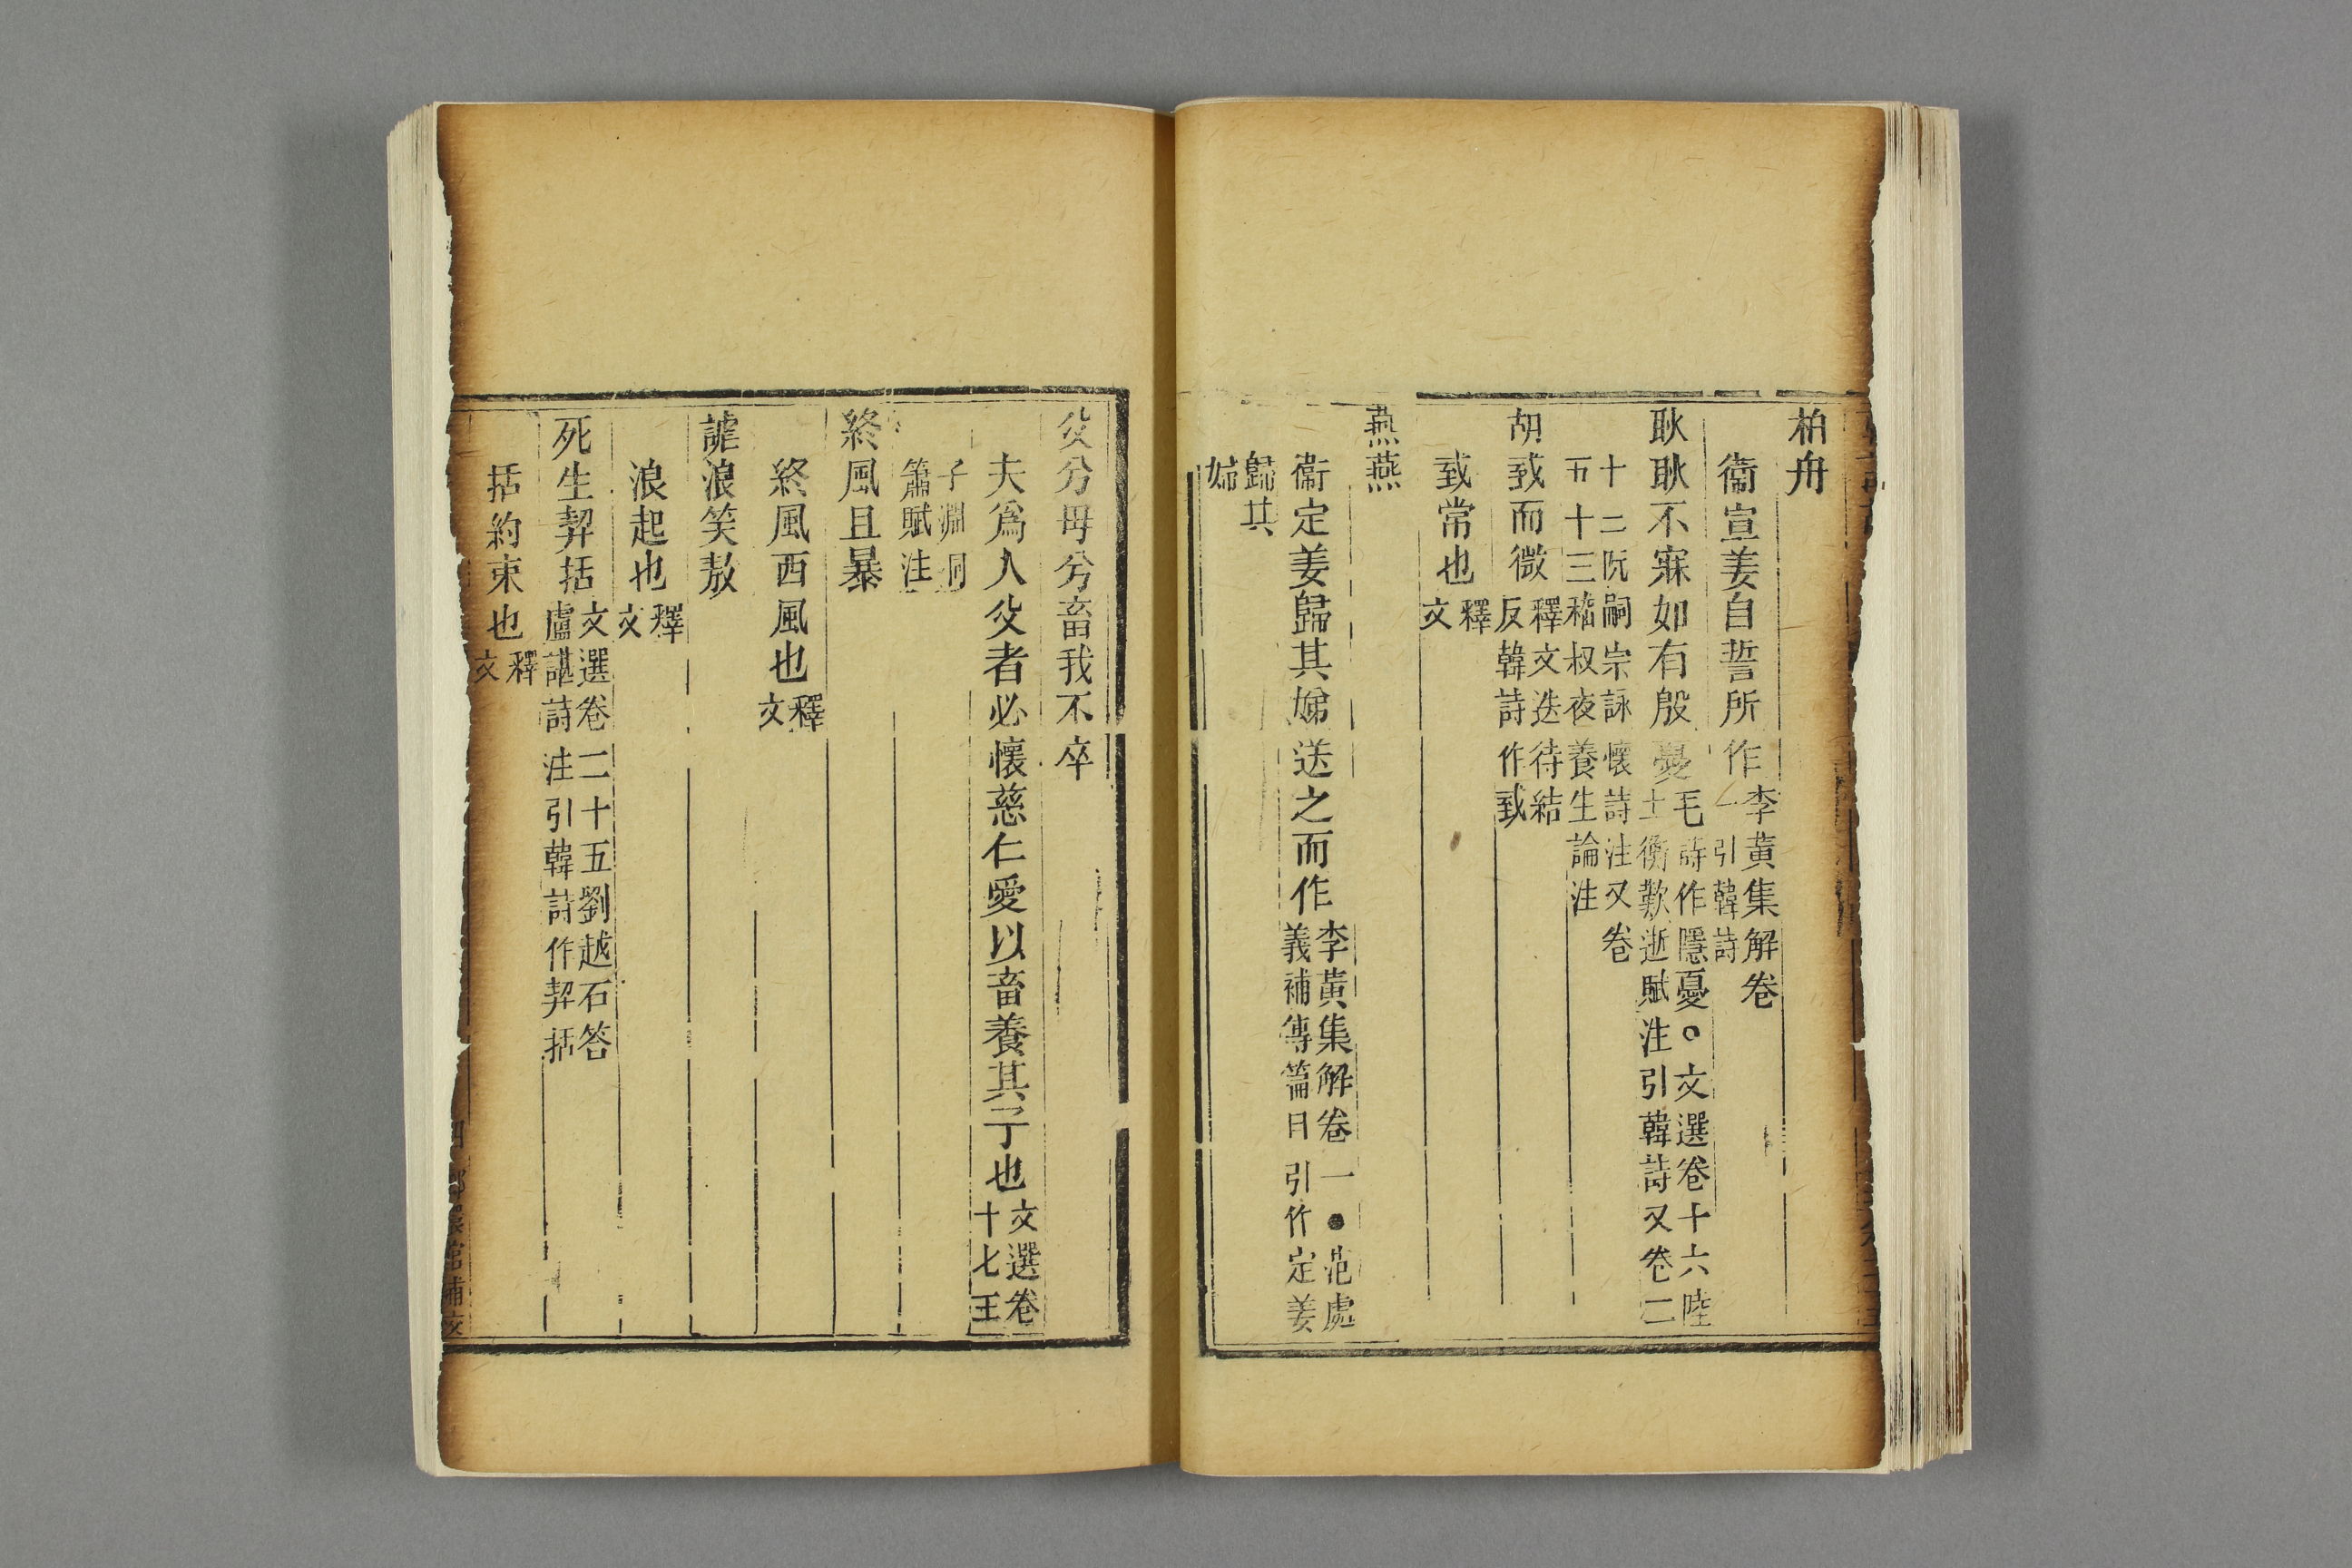 柏舟
衞宣姜自誓所作李黃集解卷一引韓詩
耿耿不寐如有殷憂毛詩作隱憂○文選卷十六陸士衡歎逝賦注引韓詩又卷二
十二阮嗣宗詠懷詩注又卷五十三嵇叔夜養生論注
胡䟴而微釋文迭待結反韓詩作䟴
䟴常也釋文
燕燕
衞定姜歸其娣送之而作李黃集解卷一●范處義補傳篇目引作定姜
歸其婦
父兮母兮畜我不卒
夫爲人父者必懷慈仁愛以畜養其子也文選卷十七王
子淵洞簫賦注
終風且暴
終風西風也釋文
謔浪笑敖
浪起也釋文
死生契括文選卷二十五劉越石答盧諶詩注引韓詩作契括
括約束也釋文
四
館補校